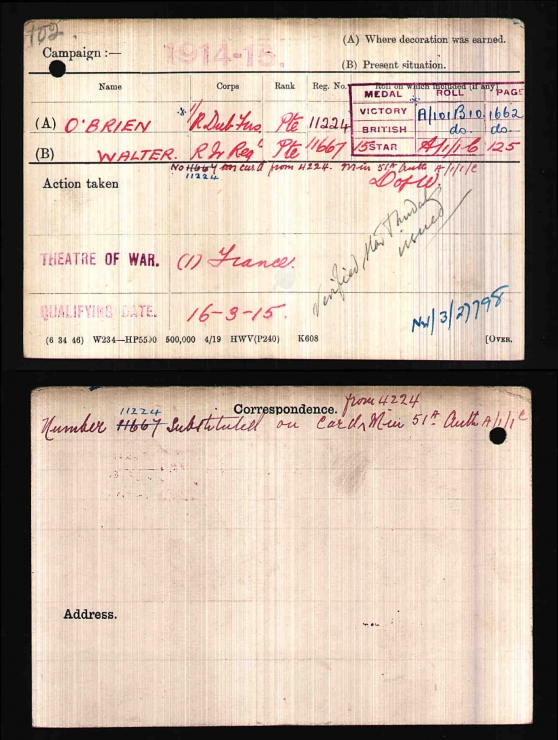 102.
Campaign :— 1914-15.
(A) Where decoration was earned.
(B) Present situation.
Name Corps Rank Reg. No. Roll on which included (if any)
MEDAL ROLL PAGE
(A) O'BRIEN 1/R Dub Fus Pte 11224
VICTORY A/101 B10. 1662
BRITISH do. do.
(B) WALTER. R Ir Reg Pte 11667
15 STAR A/1/1 C 125
No 11667 on card from 4224. Min 51A Auth A/1/1/C
11224
Action taken
D of W.
THEATRE OF WAR. (1) France.
Verified
issued
QUALIFYING DATE. 16-3-15.
NW/3/27798
(6 34 46) W234—HP5590 500,000 4/19 HWV(P240) K608 [OVER.
Correspondence.
from 4224
11224
Number 11667 Substituted on Card Min 51A Auth A/1/1 C
Address.